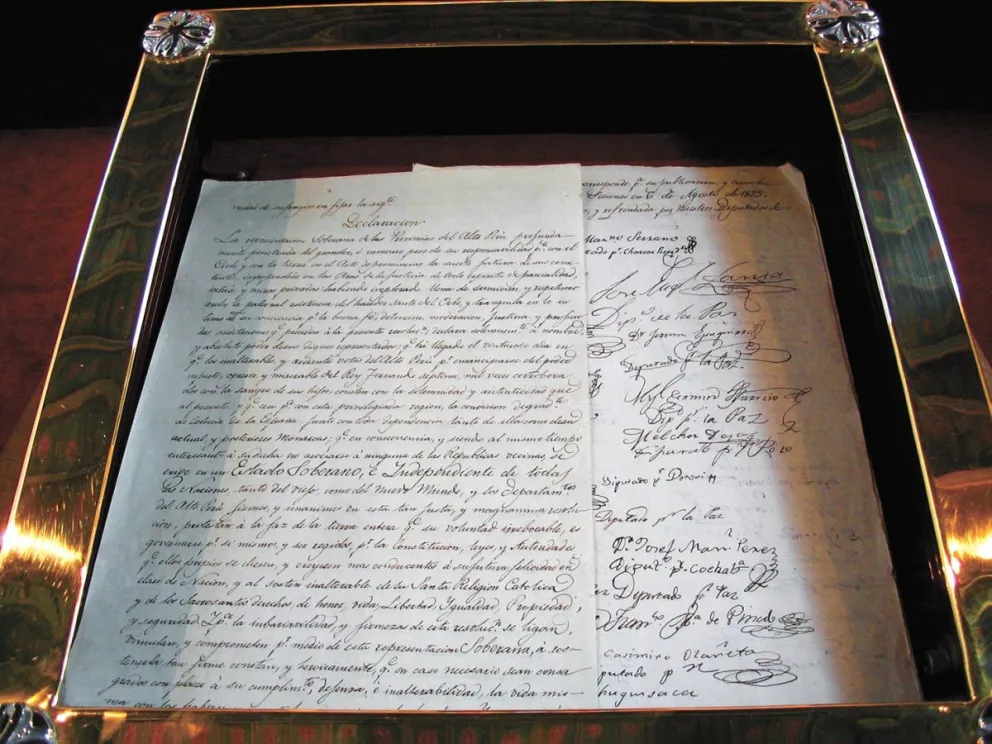 modo de sufragios en fijar la sigte
Declaracion
La representacion Soberana de las Provincias del Alto Perú, profunda-
mente penetrada del grandor, é inmenso peso de su responsabilidad pa. con el
Cielo y con la tierra en el Acto de pronunciar la suerte futura de sus comi-
tentes, despojandose en las Aras de la justicia de todo espiritu de parcialidad,
interes, y miras privadas habiendo implorado llena de sumicion, y respetuoso
ardor la paternal asistencia del hacedor Santo del Orbe, y tranquila en lo in-
timo de su conciencia pr. la buena fé, detencion, moderacion, Justicia, y profun-
das meditaciones qe. presiden á la presente resoluon, declara solemnemte. á nombre
y absoluto poder de sus dignos representados; qe. ha llegado el venturoso dia en
qe. los inalterables, y ardientes votos del Alto Perú, pr. emanciparse del poder
injusto, opresor y miserable del Rey Fernando septimo, mil veces corrobora-
dos con la sangre de sus hijos, consten con la solemnidad y autenticidad que
al presente, y qe. cese pa. con esta privilegiada region, la condicion degradte.
de Colonia de la España, junto con toda dependencia, tanto de ella como de su
actual, y posteriores Monarcas; qe. en consecuencia, y siendo al mismo tiempo
interesante á su dicha no asociarse á ninguna de las Republicas vecinas, se
erige en un Estado Soberano, é Independiente de todas
las Naciones, tanto del viejo, como del nuevo Mundo, y los Departamtos.
del Alto Perú, firmes, y unanimes en esta tan justa, y magnanima resolu-
cion, protestan á la faz de la tierra entera qe. su voluntad irrebocable, es
governarse pr. si mismos, y ser regidos, pr. la Constitucion, leyes, y Autoridades
qe. ellos propios se diesen, y creyesen mas conducentes á su futura felicidad en
clase de Nacion, y al sosten inalterable de su Santa Religion Catolica
y de los Sacrosantos derechos, de honor, vida, Libertad, Igualdad, Propiedad,
y seguridad. Y pa. la inbariavilidad, y firmeza de esta resoluon. se ligan,
vinculan, y comprometen pr. medio de esta representacion Soberana, á sos-
tenerla tan firme, constan, y heroicamente, qe. en caso necesario sean consa-
grados con placer á su cumplimto, defensa, é inalterabilidad, la vida mis-
ma con los haberes
corresponde pa. su publicacion, y
Sesiones en 6 de Agosto de 1825.
y refrendada por Nuestros Diputados
Marno Serrano
pr. Charcas
José Migl Lanza
Dipo. de la Paz
Diputado pr. la Paz.
Aparicio
Dipo. pr. la Paz
Melchor
Diputado pr.
Diputado pr. Potosi
Diputado pr. la Paz
Dr. Josef Manl Perez
Diputo. pr. Cochaba
Diputado pr. Paz
Franco Ma. de Pinedo
Casimiro Olañeta
putado pr.
huquisaca